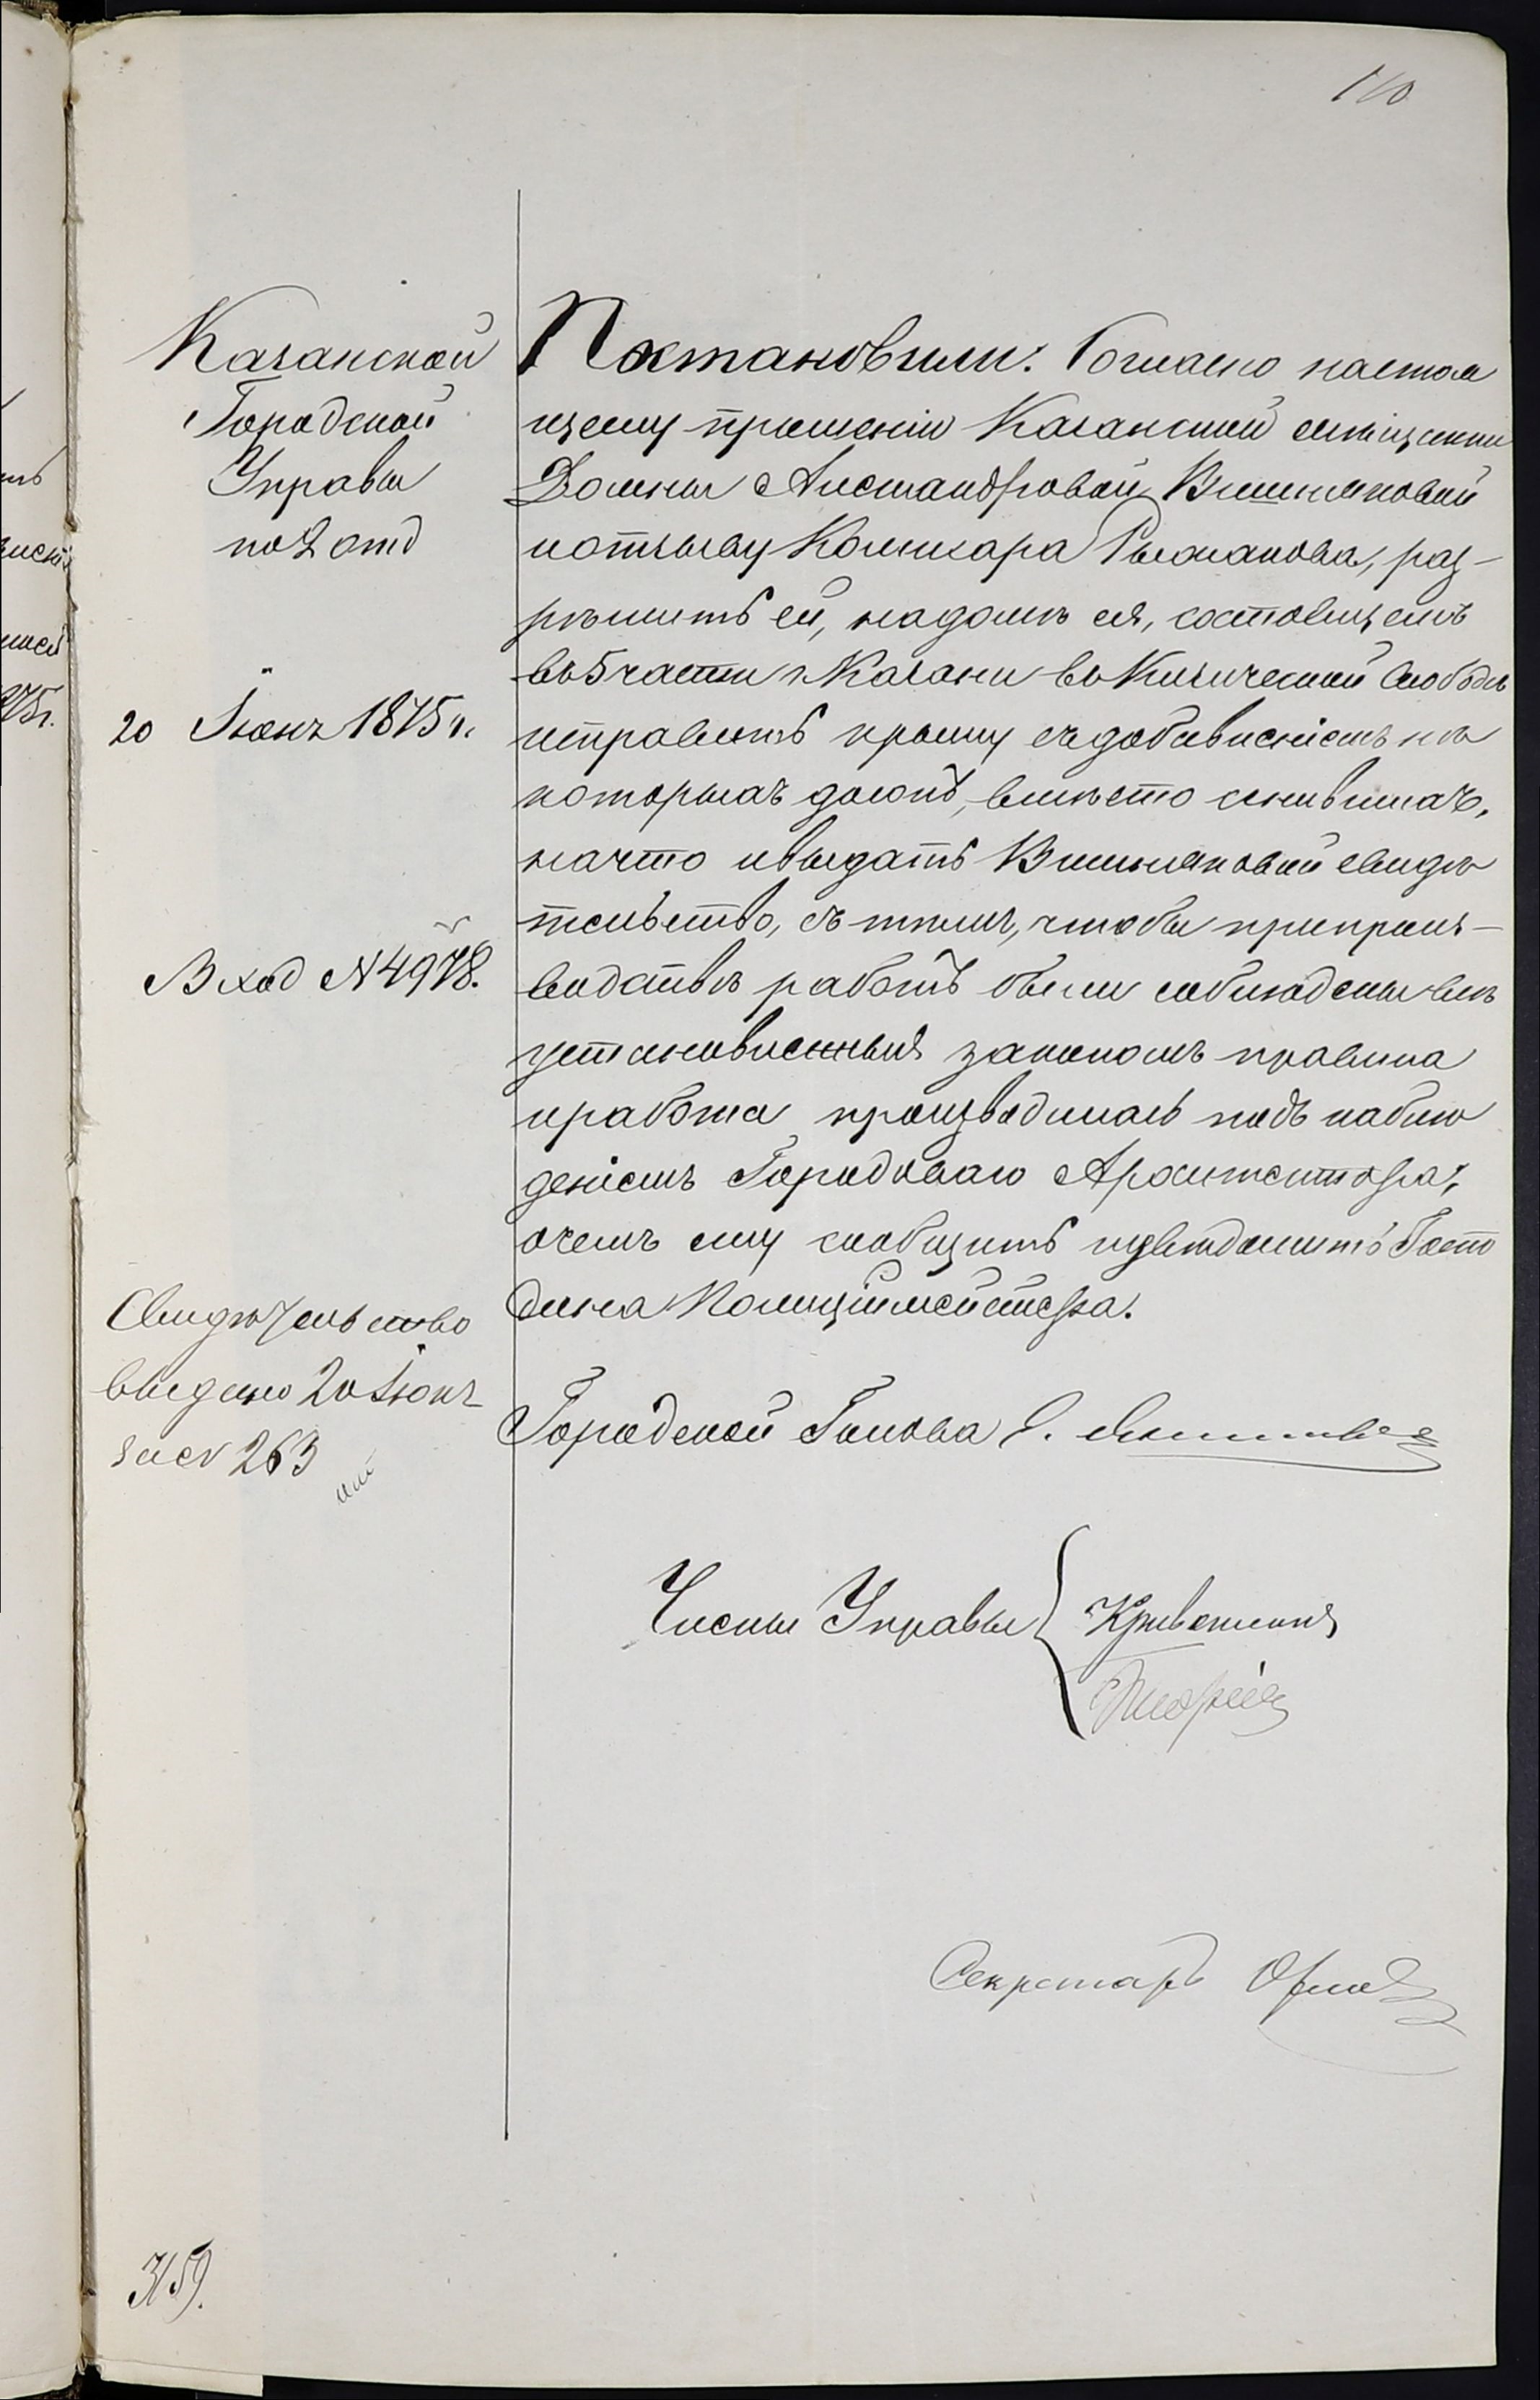 110
Казанской
Городской
Управы
по 2 отд
20 Іюня 1875 г.
Вход №4978.
Свидѣтельство
выдано 20 Іюня
за № 263
Постановили: Согласно настоя
щему прошенію Казанской мѣщанки
Домны Александровой Вишняковой
и отзыву Комисара Рыжанова, раз-
рѣшить ей, на домѣ ея, состоящемъ
въ 5 части г. Казани въ Кизической Слободѣ
исправить крышу съ добавленіемъ на
которыхъ досокъ, вмѣсто сгнившихъ,
на что и выдать Вишняковой свидѣ
тельство, съ тѣмъ, чтобы при произ-
водствѣ работъ были соблюдены всѣ
установленныя закономъ правила
и работа производилась подъ наблю
деніемъ Городоваго Архитектора,
о чемъ ему сообщить и увѣдомить Госпо
дина Полиціймейстера.
Городской Голова
Члены Управы
Секретарь Орлов
3159.